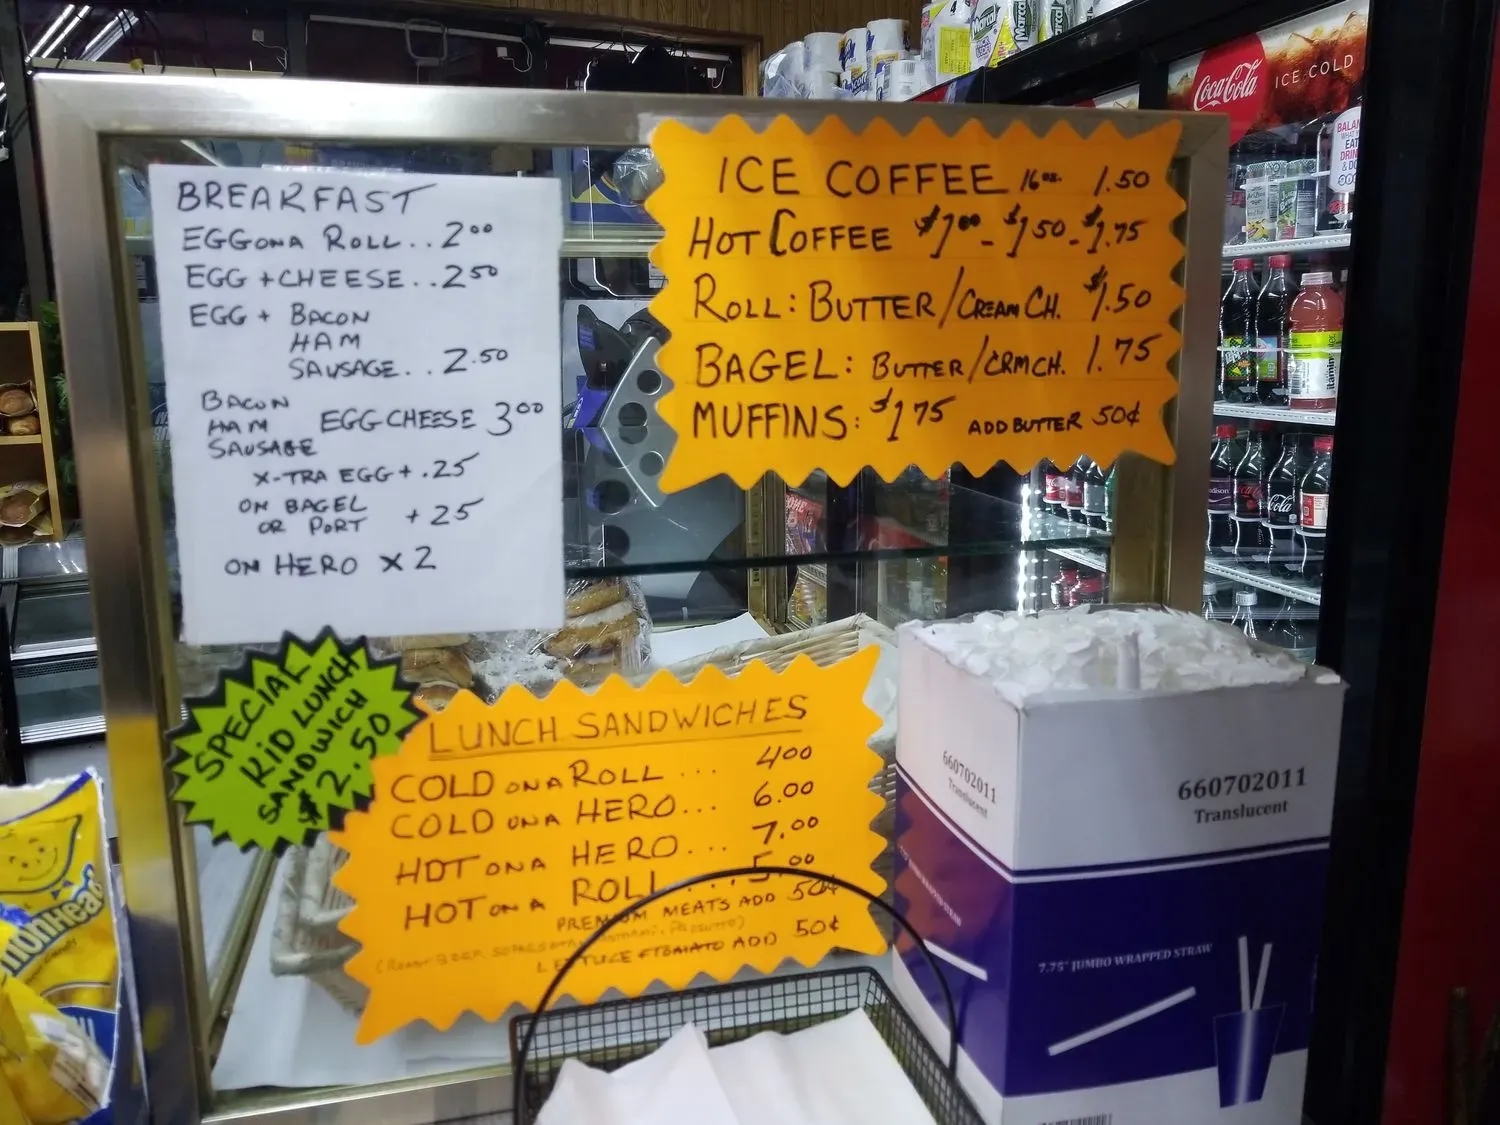 BREAKFAST
EGG ON A ROLL.. 2.00
EGG + CHEESE.. 2.50
EGG + BACON
HAM
SAUSAGE.. 2.50
BACON
HAM EGG CHEESE 3.00
SAUSAGE
X-TRA EGG + .25
ON BAGEL
OR PORT + 25
ON HERO X 2
ICE COFFEE 16 oz. 1.50
HOT COFFEE $1.00 - $1.50 - $1.75
ROLL: BUTTER/CREAM CH. $1.50
BAGEL: BUTTER/CRM CH. 1.75
MUFFINS: $1.75 ADD BUTTER 50¢
SPECIAL
KID LUNCH
SANDWICH
$2.50
LUNCH SANDWICHES
COLD ON A ROLL ... 4.00
COLD ON A HERO... 6.00
HOT ON A HERO... 7.00
HOT ON A ROLL.... 5.00
PREMIUM MEATS ADD 50¢
LETTUCE + TOMATO ADD 50¢
Coca-Cola
ICE-COLD
BALAN
WHAT Y
EAT
DRIN
& DO
Marcal
Scott
660702011
Translucent
660702011
Translucent
7.75" JUMBO WRAPPED STRAW
monHead
Coca-Cola